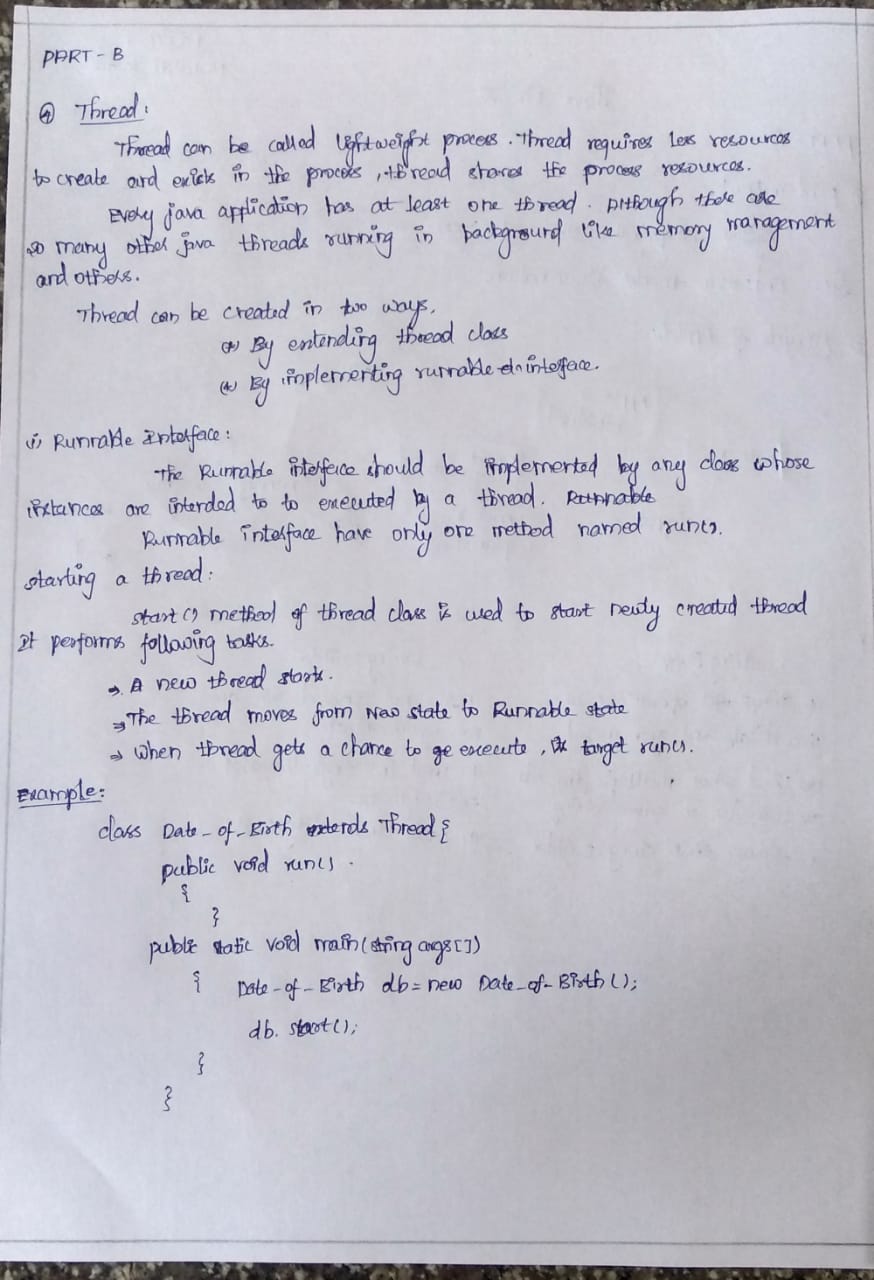 PART - B
④ Thread:
Thread can be called lightweight process. Thread requires less resources
to create and exists in the process, thread shares the process resources.
Every java application has at least one thread. Although there are
so many other java threads running in background like memory management
and others.
Thread can be created in two ways.
(*) By extending thread class
(*) By implementing runnable interface.
(i) Runnable Interface:
The Runnable interface should be implemented by any class whose
instances are intended to to executed by a thread. Runnable
Runnable interface have only one method named run().
starting a thread:
start() method of thread class is used to start newly created thread
It performs following tasks.
→ A new thread starts.
→ The thread moves from New state to Runnable state
→ When thread gets a chance to ge execute, its target run().
Example:
class Date-of-Birth extends Thread {
public void run()
{
}
public static void main(string args[])
{ Date-of-Birth db = new Date-of-Birth();
db. start();
}
}